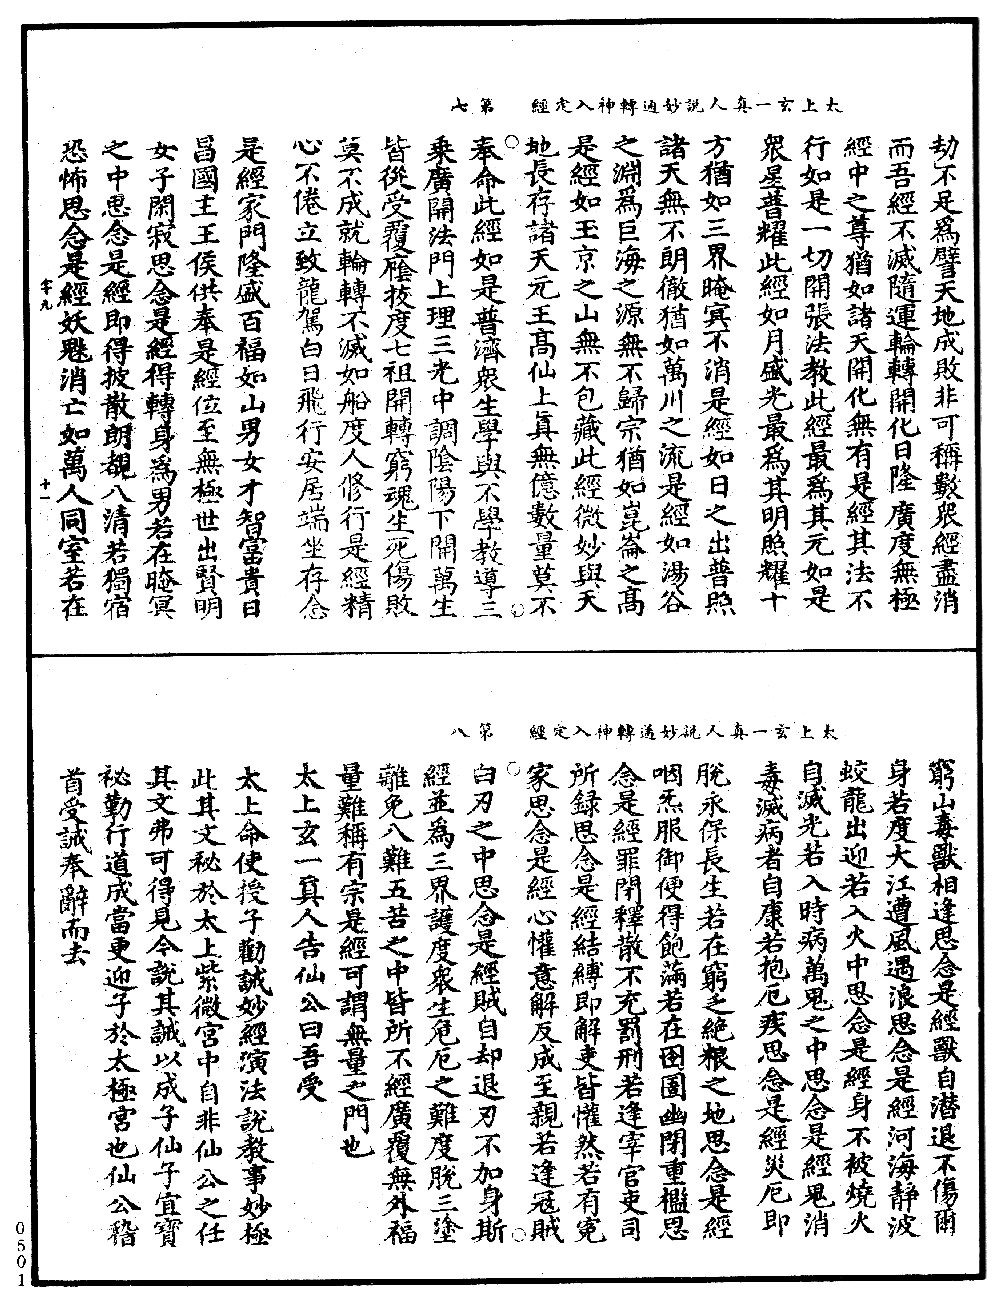 太上玄一真人說妙通轉神入定經　第七
劫不足為譬天地成敗非可稱數眾經盡消
而吾經不滅隨運輪轉開化日隆廣度無極
經中之尊猶如諸天開化無有是經其法不
行如是一切開張法教此經最為其元如是
眾星普耀此經如月盛光最為其明照耀十
方猶如三界晻冥不消是經如日之出普照
諸天無不朗徹猶如萬川之流是經如湯谷
之淵為巨海之源無不歸宗猶如崑崙之高
是經如玉京之山無不包藏此經微妙與天
地長存諸天元王高仙上真無億數量莫不
奉命此經如是普濟眾生學與不學教導三
乘廣開法門上理三光中調陰陽下開萬生
皆從受覆廕拔度七祖開轉窮魂生死傷敗
莫不成就輪轉不滅如船度人修行是經精
心不倦立致龍駕白日飛行安居端坐存念
是經家門隆盛百福如山男女才智富貴日
昌國主王侯供奉是經位至無極世出賢明
女子閑寂思念是經得轉身為男若在晻冥
之中思念是經即得披散朗覩八清若獨宿
恐怖思念是經妖魅消亡如萬人同室若在
字九　十一
太上玄一真人說妙通轉神入定經　第八
窮山毒獸相逢思念是經獸自潛退不傷爾
身若度大江遭風遇浪思念是經河海靜波
蛟龍出迎若入火中思念是經身不被燒火
自滅光若入時病萬鬼之中思念是經鬼消
毒滅病者自康若抱厄疾思念是經災厄即
脫永保長生若在窮乏絕糧之地思念是經
咽炁服御便得飽滿若在囹圄幽閉重檻思
念是經罪閉釋散不充罰刑若逢宰官吏司
所錄思念是經結縛即解吏皆懽然若有冤
家思念是經心懽意解反成至親若逢冦賊
白刃之中思念是經賊自却退刃不加身斯
經並為三界護度眾生危厄之難度脫三塗
離免八難五苦之中皆所不經廣覆無外福
量難稱有宗是經可謂無量之門也
太上玄一真人告仙公曰吾受
太上命使授子勸誡妙經演法說教事妙極
此其文秘於太上紫微宮中自非仙公之任
其文弗可得見今說其誡以成子仙子宜寶
祕勤行道成當更迎子於太極宮也仙公稽
首受誡奉辭而去
0501